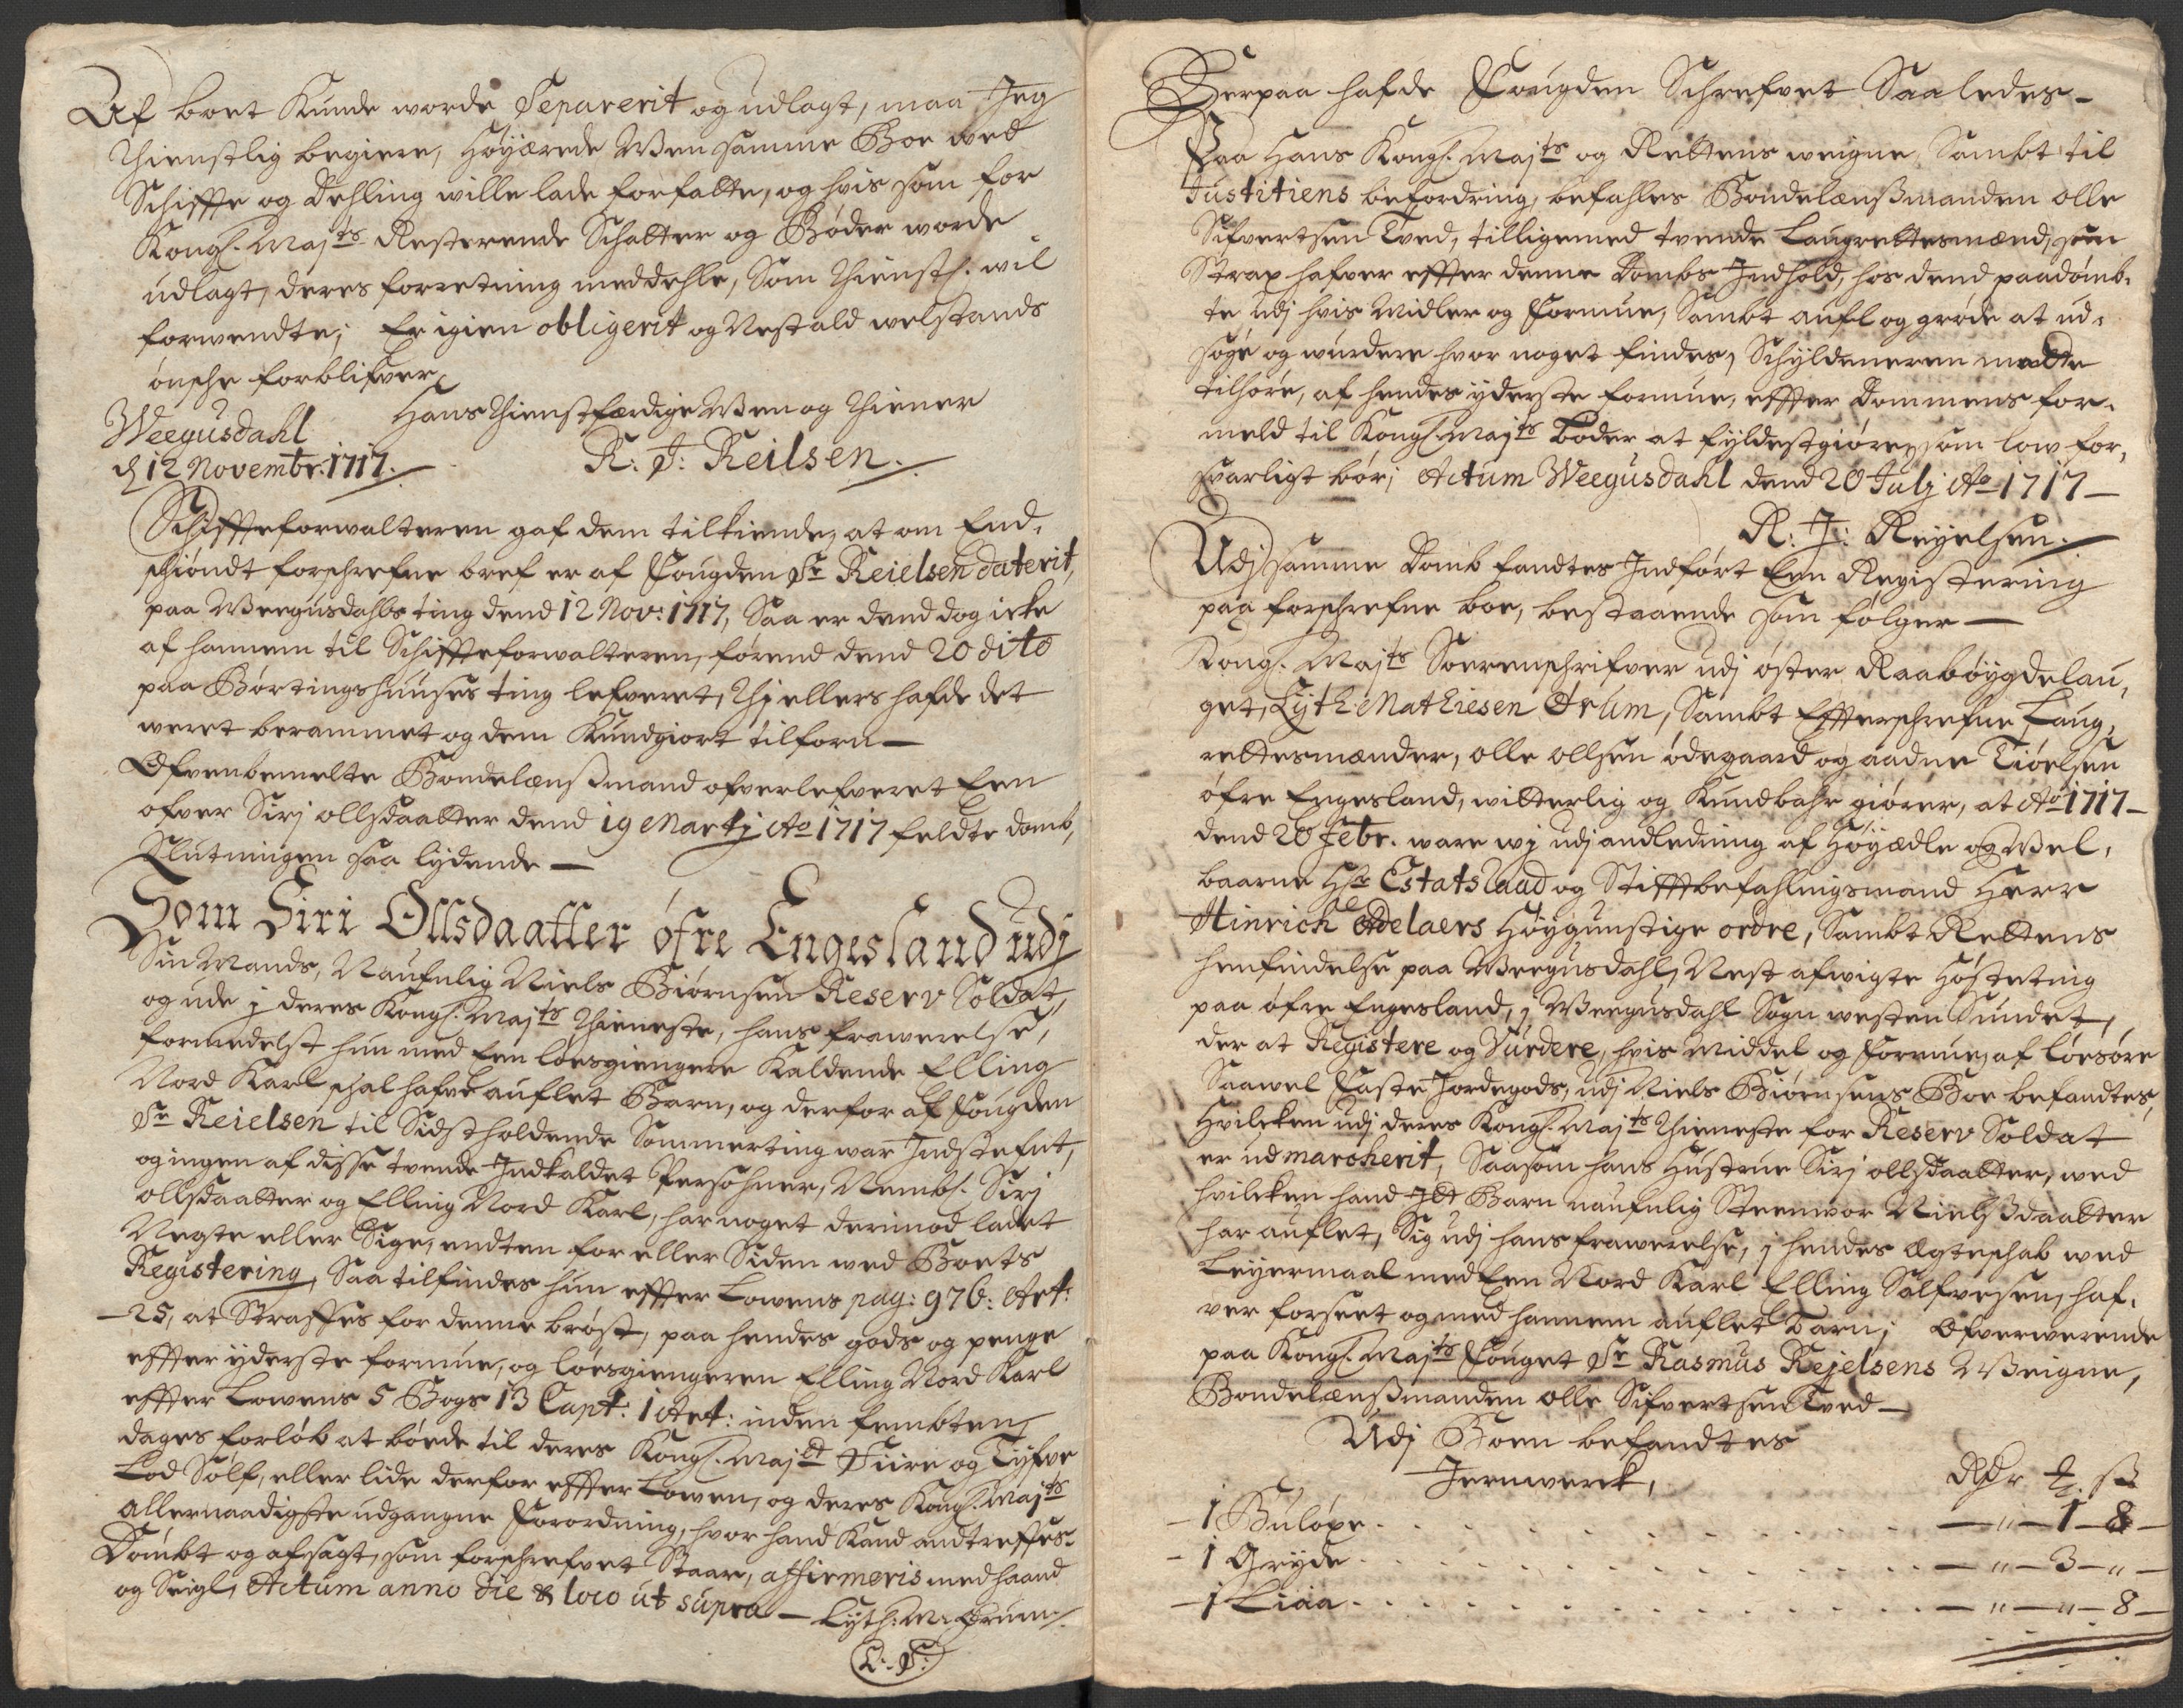 Af boet Kunde worde Separerit og udlagt, maa Jeg
thienstlig begiere, Høyærede Wen samme Boe wed
Schiffte og Dehling wille lade forfatte, og hvis som for
Kongl. Majts Resterende Schatter og Bøder worde
udlagt, deres forretning meddehle, Som thienstl. wil
forwendte; Er igien obligerit og Nest ald welstands
ønsche forblifver
Hans thienstfærdige Wen og thiener
Weegusdahl
d 12 Novembr. 1717.
R: J: Reilsen.
Schiffteforwalteren gaf dem tilkiende, at om End-
schiøndt forschrefne bref er af Fougden Sr Reielsen daterit,
paa Weegusdahls ting dend 12 Nov: 1717, Saa er dend dog icke
af hannem til Schiffteforwalteren, førend dend 20 dito
paa Børtingshuuses ting lefveret, thj ellers hafde det
weret berammet og dem Kundgiort tilforn —
Ofvenbemelte Bondelænssmand ofverlefveret Een
ofver Sirj ollsdaatter dend 19 Martj Ao 1717 feldte domb,
Slutningen saa lydende —
Som Siri Ollsdaatter øfre Engesland udj
Sin Mands, Naufnlig Niels Biørnsen Reserv Soldat,
og ude j deres Kongl. Majts thieneste, hans frawerelse,
formedelst hun med Een løesgiengere Kaldende Elling
Nord Karl schal hafve auflet Barn, og derfor af Fougden
Sr Reielsen til Sidstholdende Sommerting war Indstefnt,
og ingen af disse tvende Indkaldet Persohner, Nembl. Sirj
ollsdaatter og Elling Nord Karl, har noget derimod ladet
Negte eller Sige, endten for eller Siden wed Boets
Registering, Saa tilfindes hun effter Lowens pag: 976: Art:
— 25, at Straffes for denne brøst, paa hendes gods og penge
effter yderste formue, og løesgiengeren Elling Nord Karl
effter Lowens 5 Bogs 13 Capt: 1 Art: inden fembten
dages forløb at bøede til deres Kongl. Majtt Fiire og Tyfve
Lod Sølf, eller lide derfor effter Lowen, og deres Kongl. Majts
allernaadigste udgangne Forordning, hvor hand Kand andtreffes.
Dømbt og afsagt, som forschrefvet Staar, affirmeris med haand
og Seigl, Actum anno die & loco ut supra — Lyth: M: Ørum
L: S:
Derpaa hafde Fougden Schrefvet Saaledes —
Paa Hans Kongl. Majts og Rettens weigne, Sambt til
Justitiens befordring, befahles Bondelænssmanden olle
Sifvertsen Tved, tilligemed tvende Laugrettesmænd, som
Strax hafver effter denne Dombs Indhold, hos dend paadømb-
te udj hvis Midler og Formue, Sambt aufl og grøde at ud-
søge og wurdere hvor noget findes, Schyldneren motte
tilhøre, af hendes yderste formue, effter Dommens for-
meld til Kongl. Majts Bøder at fyldestgiøre, som low for-
svarligt bør; Actum Weegusdahl dend 20 Julj Ao 1717 —
R: J: Reyelsen.
Udj samme Domb fandtes Indført Een Registering
paa forschrefne boe, bestaaende som følger —
Kongl. Majts Soerenschrifver udj øster Raabøygdelau-
get, Lyth Mathiesen Ørum, Sambt Effterschrefne Laug-
rettesmænder, olle ollsen ødegaard og aadne Tiøelsen
øfre Engesland, witterlig og Kundbahr giører, at Ao 1717 —
dend 20 Febr. ware wj udj andledning af Høyædle og Wel-
baarne Hr Estatsraad og Stifftbefahlingsmand Herr
Hinrich Adelaers Høygunstige ordre, Sambt Rettens
henfindelse paa Weegusdahls Nest afwigte Høsteting
paa øfre Engesland, j Weegusdahl Sogn westen Sundet,
der at Registere og Vurdere, hvis Middel og Formue, af løesøre
Saawel Faste Jordegods, udj Niels Biørnsens Boe befandtes,
Hvilcken udj deres Kongl. Majts thieneste for Reserv Soldat
er udmarcherit, Saasom hans Hustrue Sirj ollsdaatter, wed
hvilcken hand Jtt Barn naufnlig Steenwor Nielssdaatter
har auflet, Sig udj hans frawerelse, j hendes Ægteschab wed
Leyermaal med Een Nord Karl Elling Sølfvesen, haf-
ver forseet og med hannem auflet Barn; Ofverwerende
paa Kongl. Majts Fouget Sr Rasmus Rejelsens Weigne,
Bondelænssmanden olle Sifvertsen Tved —
Udj Boen befandtes
Jernwerck, Rdr ß
— 1 Buløxe . . . — " — 1 — 8 —
— 1 Gryde . . . — " — 3 — " —
— 1 Liaa . . . — " — " — 8 —